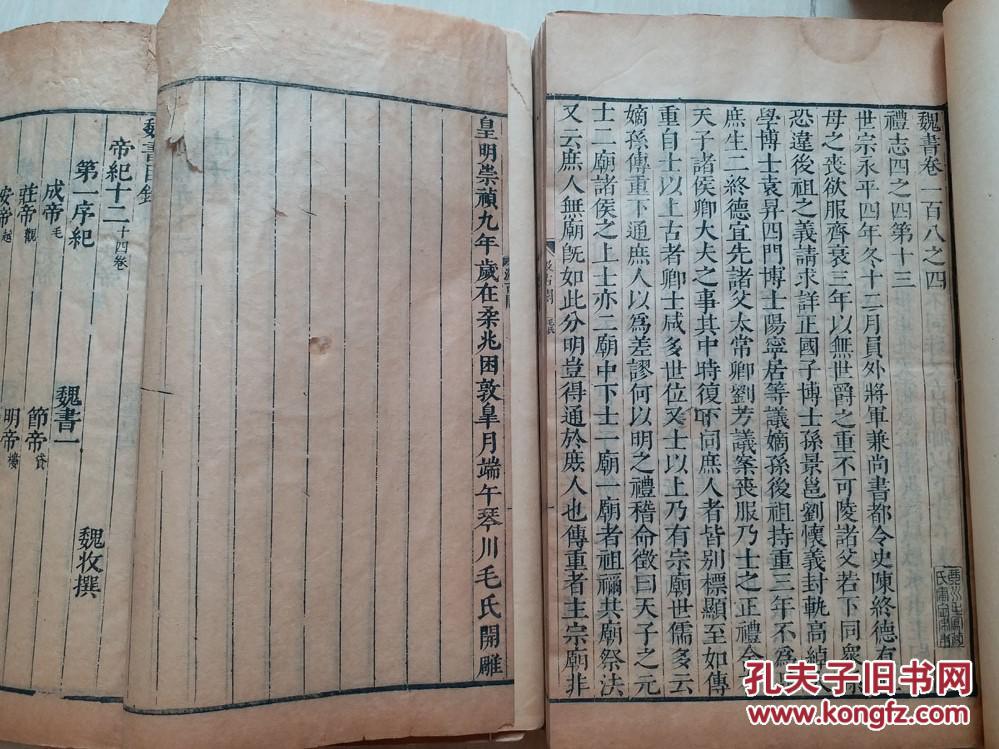 魏書卷一百八之四
禮志四之四第十三
世宗永平四年冬十二月員外將軍兼尚書都令史陳終德有
母之喪欲服齊衰三年以無世爵之重不可陵諸父若下同衆
恐違後祖之義請求詳正國子博士孫景邕劉懷義封軌高綽
學博士袁昇四門博士陽寧居等議嫡孫後祖持重三年不爲
庶生二終德宜先諸父太常卿劉芳議案喪服乃士之正禮含
天子諸侯卿大夫之事其中時復下同庶人者皆別標顯至如傳
重自士以上古者卿士咸多世位又士以上乃有宗廟世儒多云
嫡孫傳重下通庶人以爲差謬何以明之禮稽命徵曰天子之元
士二廟諸侯之上士亦二廟中下士一廟一廟者祖禰共廟祭法
又云庶人無廟旣如此分明豈得通於庶人也傳重者主宗廟非
汲古閣
毛氏
皇明崇禎九年歲在柔兆困敦皐月端午琴川毛氏開雕
魏書目錄
帝紀十二 十四卷
第一序紀
魏書一
魏收撰
成帝 毛
節帝 貸
莊帝 觀
明帝 樓
安帝 越
孔夫子旧书网
www.kongfz.com